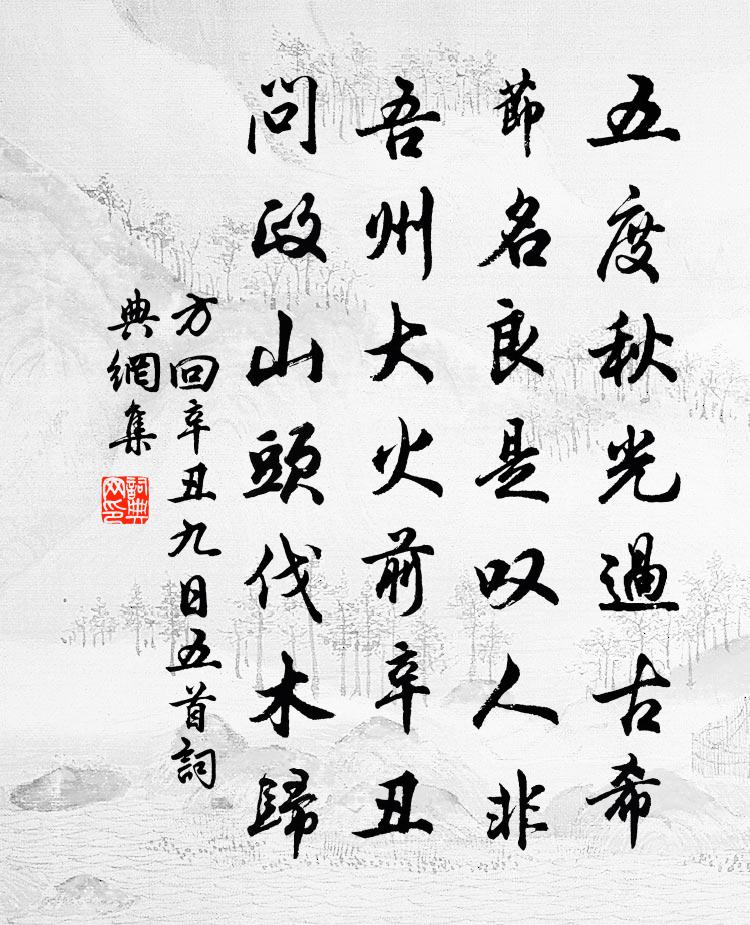 五度秋光過古希
節名良是叹人非
吾州大火前辛丑
問政山頭伐木歸
方回辛丑九日五首詞
典網集
詞典
网印